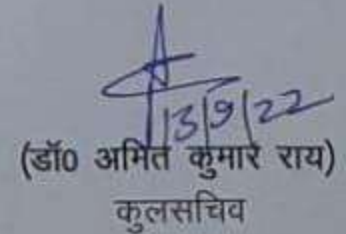 13/9/22
(डॉ0 अमित कुमार राय)
कुलसचिव